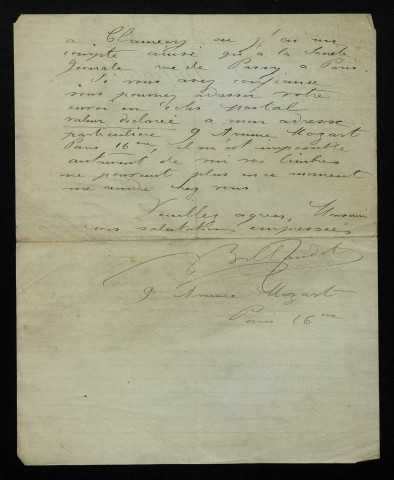 a Clamecy ou j'ai un
compte ainsi qu'a la Société
Generale rue de Passy a Paris.
Si vous avez confiance
vous pourrez adresser votre
envoi en colis postal
valeur declarée a mon adresse
particuliere 9 Avenue Mozart
Paris 16me, il m'est impossible
autrement de voir vos timbres
ne pouvant plus en ce moment
me rendre chez vous
Veuillez agreer, Monsieur
mes salutations empressées
Billaudot
9 Avenue Mozart
Paris 16me